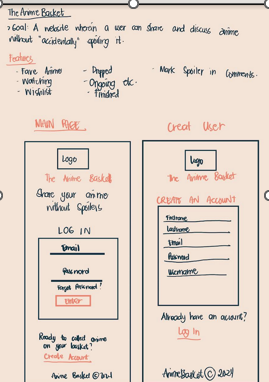 The Anime Basket
> Goal: A website wherein a user can share and discuss anime
without "accidentally" spoiling it.
Features
- Fave Anime
- Watching
- Wishlist
- Dropped
- Ongoing etc.
- Finished
- Mark Spoiler in Comments.
MAIN PAGE
Logo
The Anime Basket
Share your anime
without Spoilers
LOG IN
Email
Password
Forgot Password?
ENTER
Ready to called anime
on your basket?
Create Account
Anime Basket © 2021
Creat User
Logo
The Anime Basket
CREATE AN ACCOUNT
Firstname
Lastname
Email
Password
Username
Already have an account?
Log In
AnimeBasket © 2021